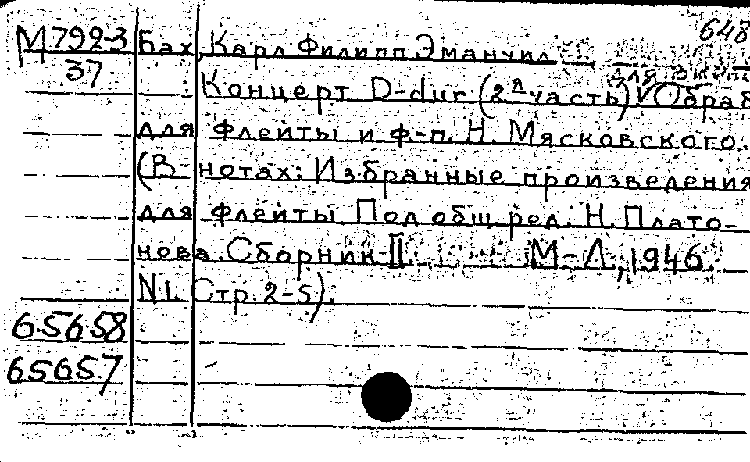 648
М 792-3
37
Бах, Карл Филипп Эмануил
для
Концерт D-dur (2я часть) V Обраб.
для флейты и ф-п. Н. Мясковского.
(В нотах: Избранные произведения
для флейты Под общ. ред. Н. Плато-
нова. Сборник II. М-Л, 1946.
N1. Стр. 2-5).
65658
65657